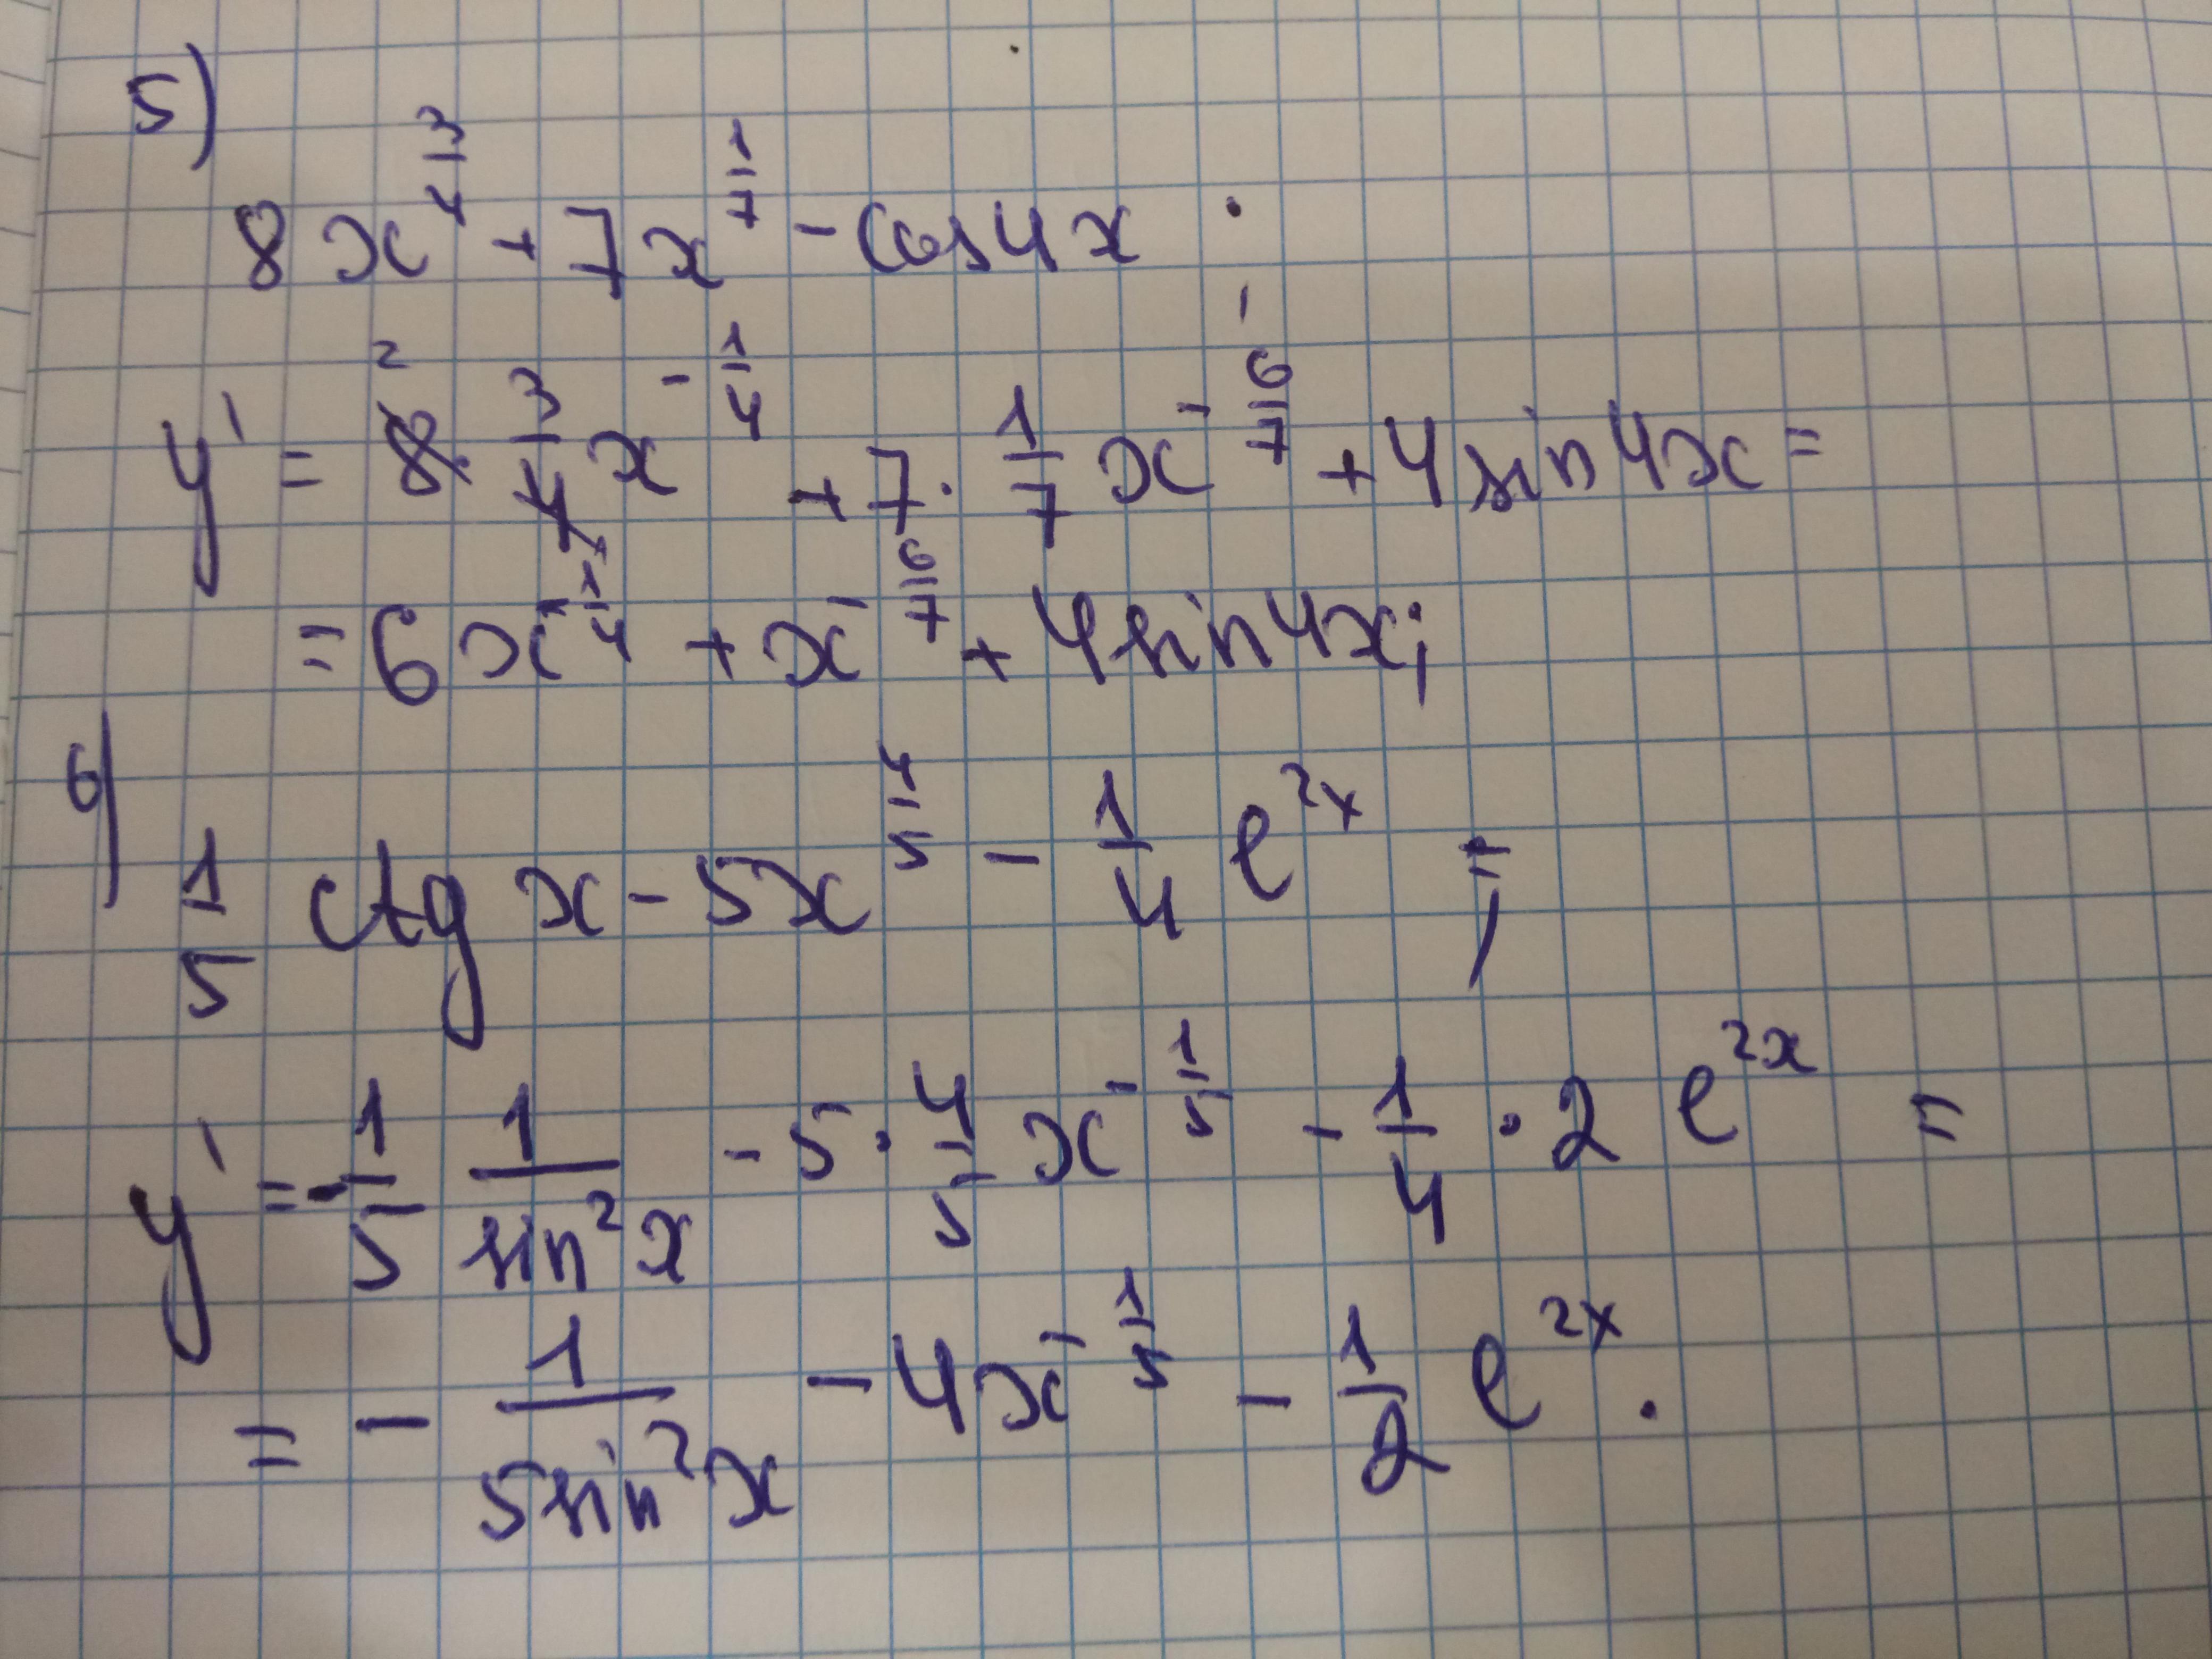 5)
8x^(3/4) + 7x^(1/7) - cos4x
y' = 8 · 3/4 x^(-1/4) + 7 · 1/7 x^(-6/7) + 4 sin4x =
= 6x^(-1/4) + x^(-6/7) + 4sin4x;
6)
1/5 ctg x - 5x^(4/5) - 1/4 e^(2x) ;
y' = -1/5 1/sin²x - 5 · 4/5 x^(-1/5) - 1/4 · 2 e^(2x) =
= - 1/(5sin²x) - 4x^(-1/5) - 1/2 e^(2x).